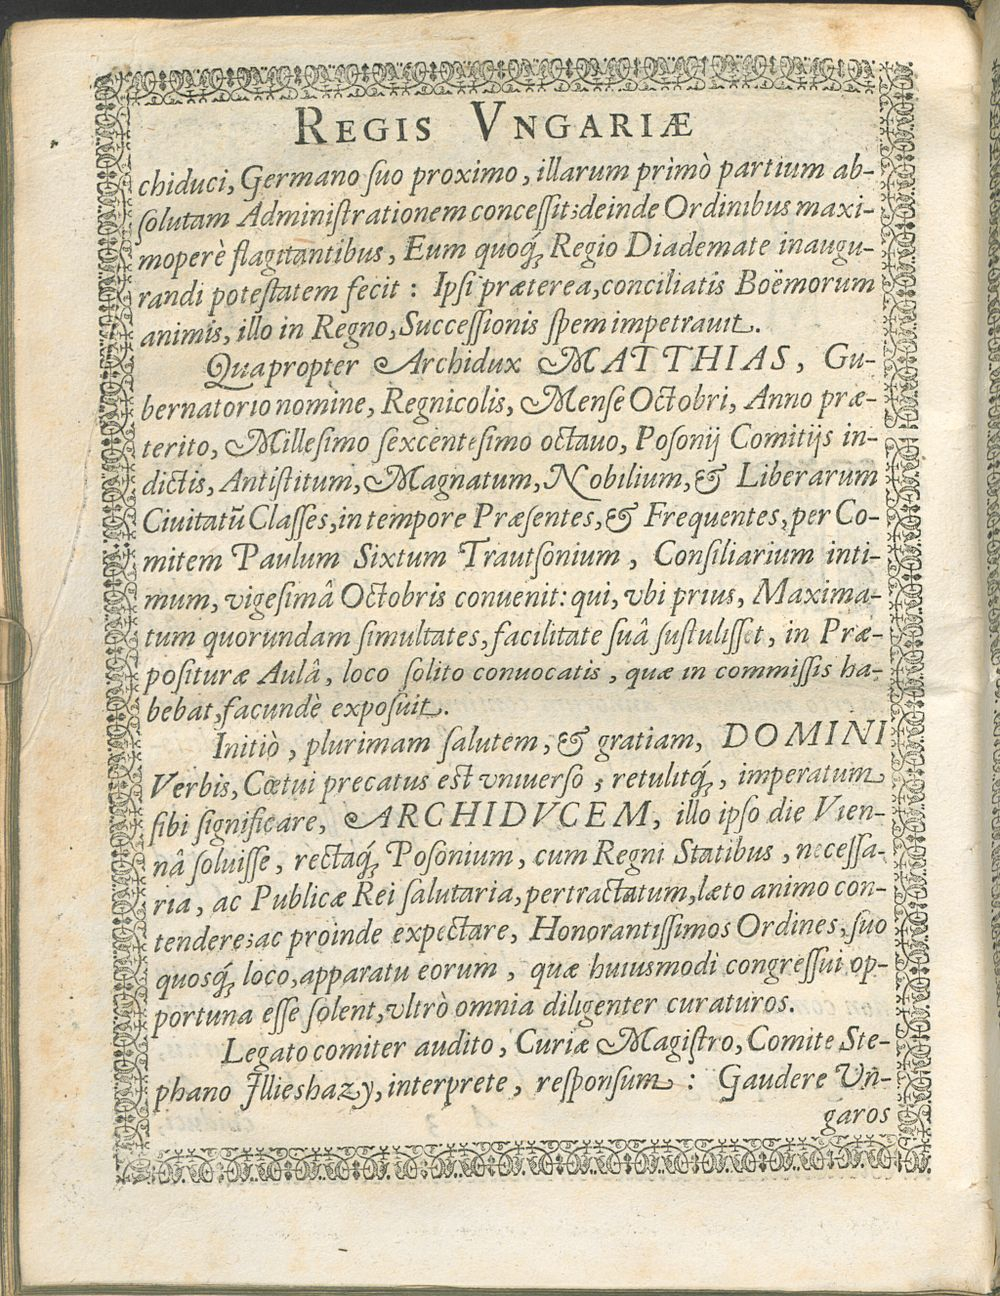 REGIS VNGARIÆ
chiduci, Germano ſuo proximo, illarum primò partium ab-
ſolutam Adminiſtrationem conceſſit; deinde Ordinibus maxi-
moperè flagitantibus, Eum quoq́; Regio Diademate inaugu-
randi poteſtatem fecit : Ipſi præterea, conciliatis Boëmorum
animis, illo in Regno, Succeſſionis ſpem impetrauit.
Quapropter Archidux MATTHIAS, Gu-
bernatorio nomine, Regnicolis, Menſe Octobri, Anno præ-
terito, Milleſimo ſexcenteſimo octauo, Poſonij Comitijs in-
dictis, Antiſtitum, Magnatum, Nobilium, & Liberarum
Ciuitatũ Claſſes, in tempore Præſentes, & Frequentes, per Co-
mitem Paulum Sixtum Trautſonium, Conſiliarium inti-
mum, vigeſimâ Octobris conuenit: qui, vbi prius, Maxima-
tum quorundam ſimultates, facilitate ſuâ ſuſtuliſſet, in Præ-
poſituræ Aulâ, loco ſolito conuocatis, quæ in commiſſis ha-
bebat, facundè expoſuit.
Initiò, plurimam ſalutem, & gratiam, DOMINI
Verbis, Cœtui precatus eſt vniuerſo ; retulitq́;, imperatum
ſibi ſignificare, ARCHIDVCEM, illo ipſo die Vien-
nâ ſoluiſſe, rectaq́; Poſonium, cum Regni Statibus, neceſſa-
ria, ac Publicæ Rei ſalutaria, pertractatum, læto animo con-
tendere; ac proinde expectare, Honorantiſſimos Ordines, ſuo
quosq́; loco, apparatu eorum, quæ huiusmodi congreſſui op-
portuna eſſe ſolent, vltrò omnia diligenter curaturos.
Legato comiter audito, Curiæ Magiſtro, Comite Ste-
phano Jllieshazy, interprete, reſponſum : Gaudere Vn-
garos